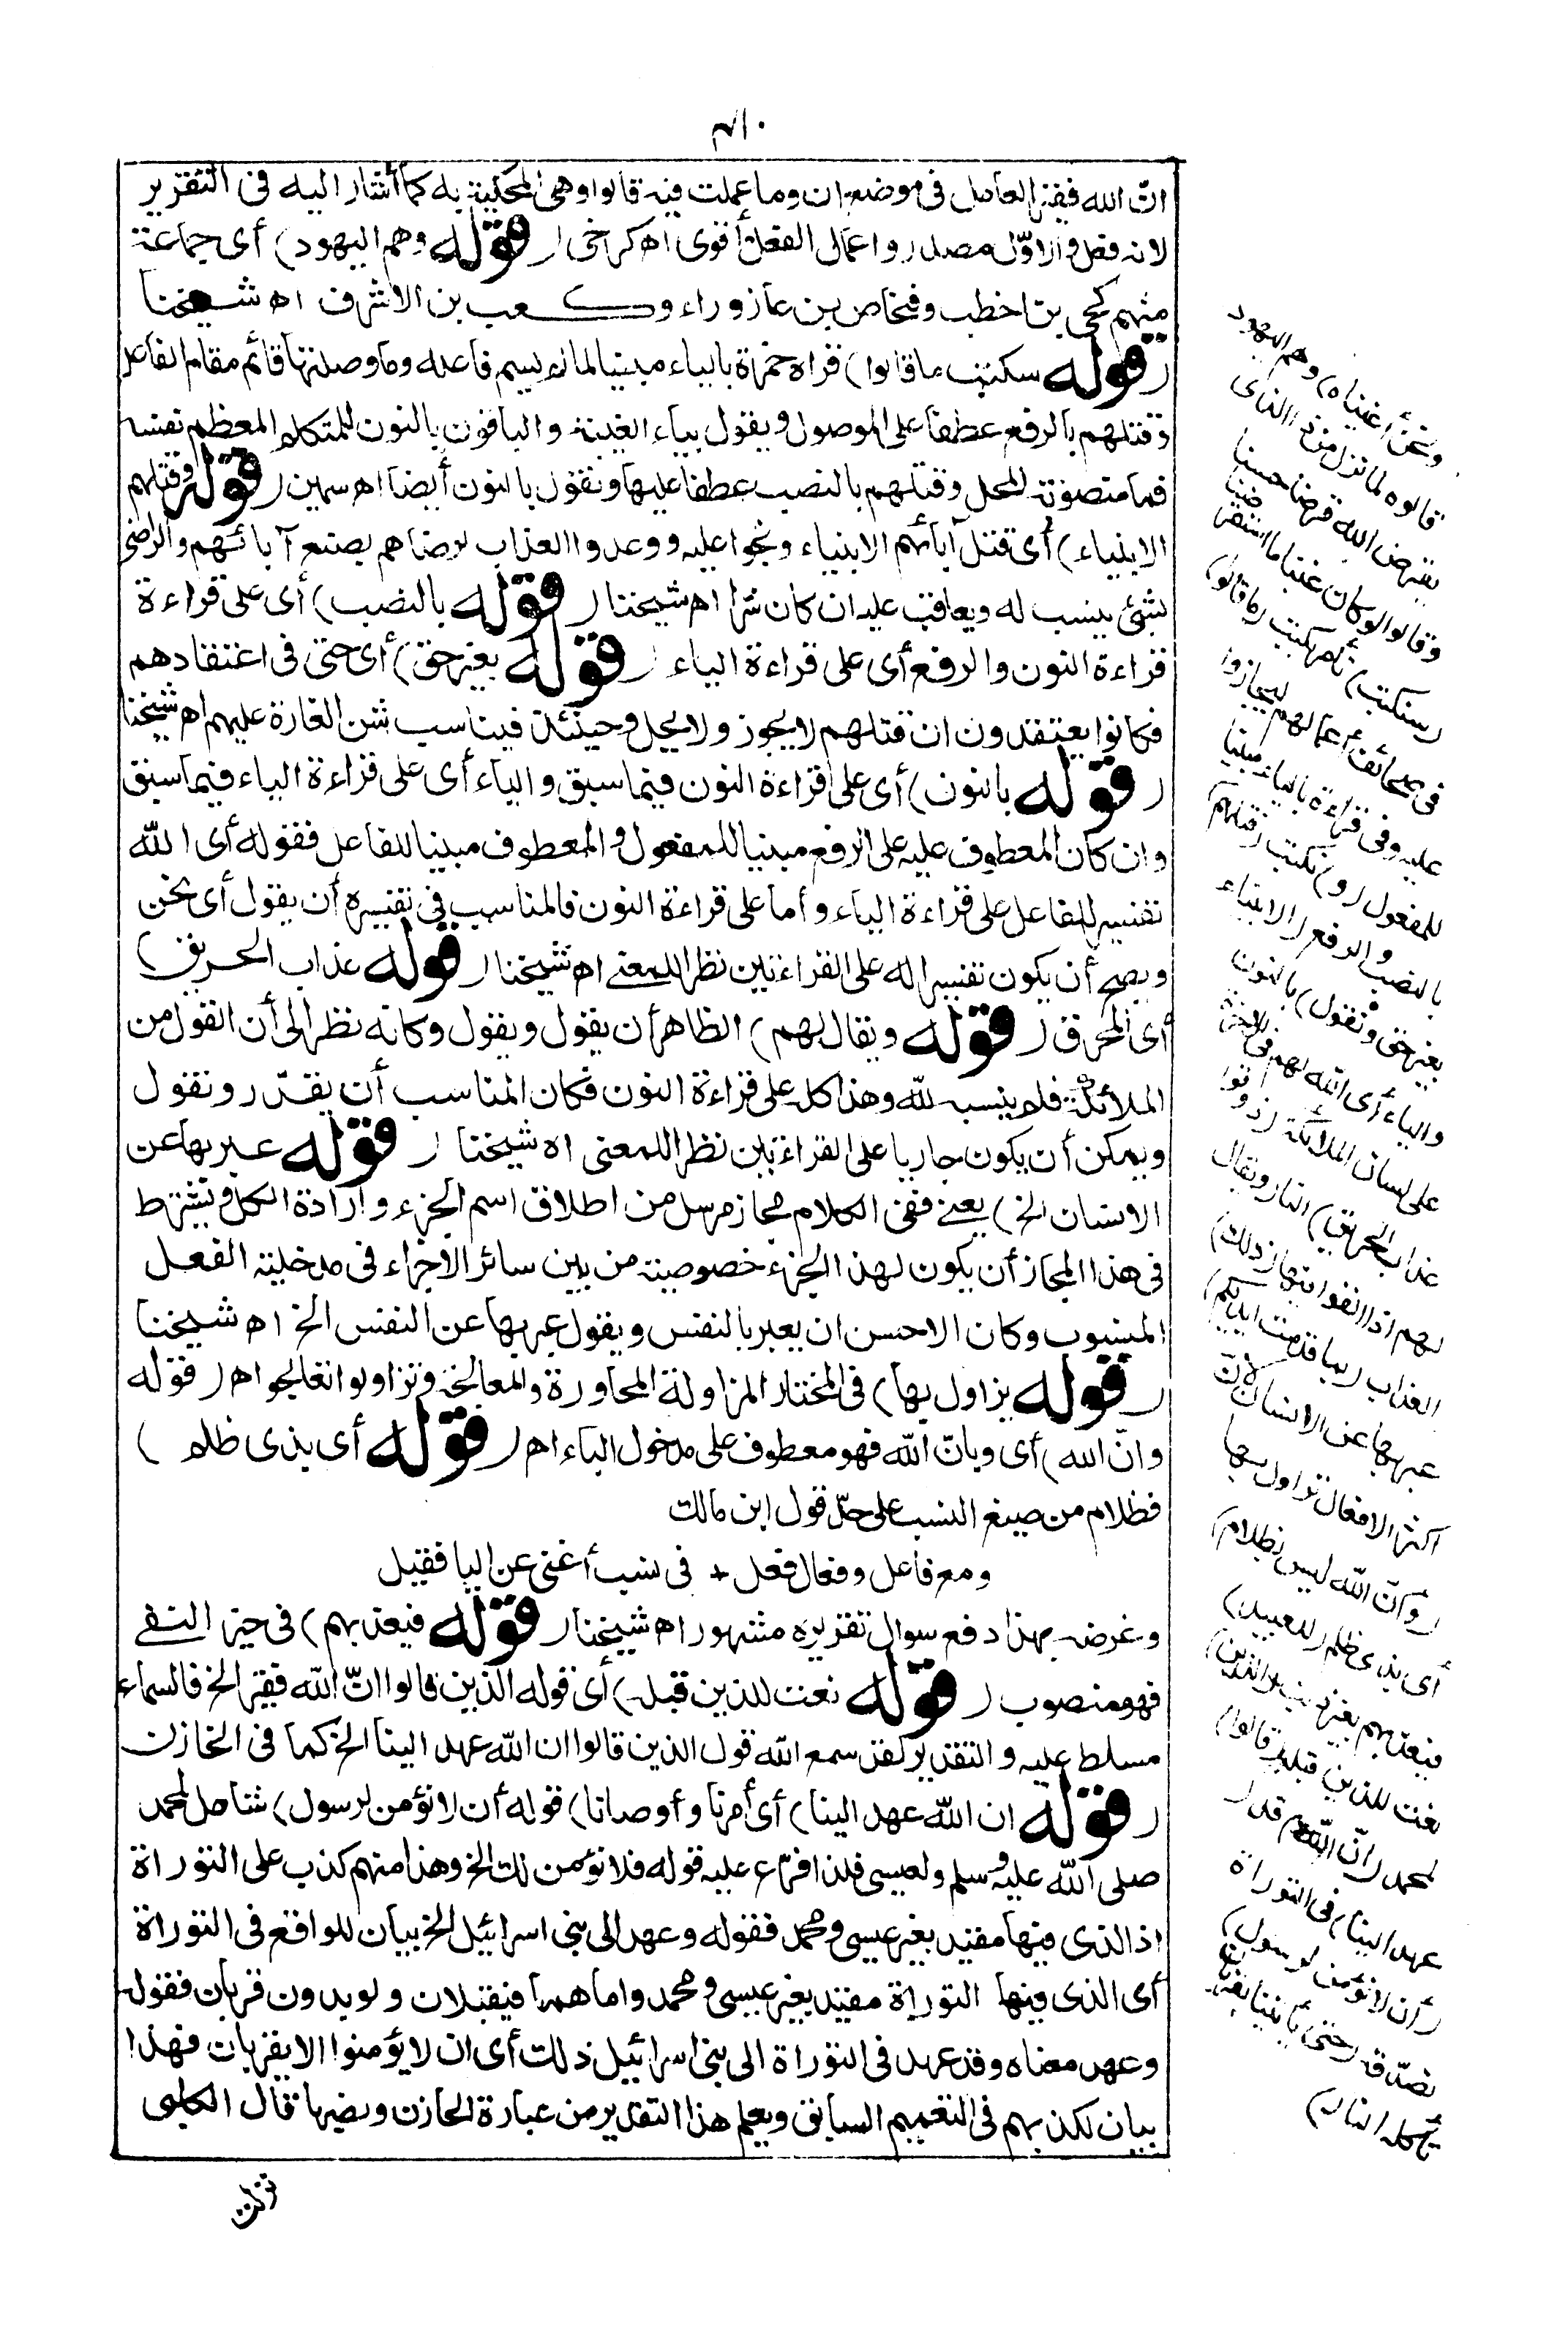 انّ الله فقير العامل في موضع ان وما عملت فيه قالوا وهي المحكية به كما أشار اليه في التقرير
لانه فعل والاوّل مصدر واعمال الفعل أقوى اه كرخي (قوله وهم اليهود) أى جماعة
منهم كحي بن اخطب وفنحاص بن عازوراء وكعب بن الاشرف اه شيخنا
(قوله سنكتب ما قالوا) قراه حمزة بالياء مبنيا لما لم يسم فاعله وما وصلتها قائم مقام الفاعل
وقتلهم بالرفع عطفا على الموصول ويقول بياء الغيبة والباقون بالنون للمتكلم المعظم نفسه
فما منصوبة المحل وقتلهم بالنصب عطفا عليها ونقول بالنون أيضا اه سمين (قوله وقتلهم
الانبياء) أى قتل آبائهم الانبياء ووعدوا العذاب لرضاهم بصنع آبائهم والراضي
بشئ ينسب له ويعاقب عليه ان كان شرّا اه شيخنا (قوله بالنصب) أى على قراءة
قراءة النون والرفع أى على قراءة الياء (قوله بغير حق) أى حتى في اعتقادهم
فكانوا يعتقدون ان قتلهم لا يجوز ولا يحل وحينئذ فيناسب شن الغارة عليهم اه شيخنا
(قوله بالنون) أى على قراءة النون فيما سبق والياء أى على قراءة الياء فيما سبق
وان كان المعطوف عليه على الرفع مبنيا للمفعول والمعطوف مبنيا للفاعل فقوله أى الله
تفسير للفاعل على قراءة الياء وأما على قراءة النون فالمناسب في تفسيره أن يقول أى نحن
ويصح أن يكون تفسيرا له على القراءتين نظرا للمعنى اه شيخنا (قوله عذاب الحريق)
أى المحرق (قوله ويقال لهم) الظاهر أن يقول ويقول وكانه نظر الى أن القول من
الملائكة فلم ينسبه لله وهذا كله على قراءة النون فكان المناسب أن يقدّر ونقول
ويمكن أن يكون جاريا على القراءتين نظرا للمعنى اه شيخنا (قوله عبر بها عن
الانسان الخ) يعني ففي الكلام مجاز مرسل من اطلاق اسم الجزء وارادة الكل ويشترط
في هذا المجاز أن يكون لهذ الجزء خصوصية من بين سائر الاجزاء في مدخلية الفعل
المنسوب وكان الاحسن ان يعبر بالنفس ويقول عبر بها عن النفس الخ اه شيخنا
(قوله يزاول بها) في المختار المزاولة المحاورة والمعالجة وتزاولوا تعالجوا اه (قوله
وانّ الله) أى وبانّ الله فهو معطوف على مدخول الباء اه (قوله أى بذى ظلم)
فظلام من صيغ النسب على حدّ قول ابن مالك
ومع فاعل وفعال فعل + في نسب أغنى عن اليا فقبل
وغرضه بهذا دفع سوال تقريره مشهور اه شيخنا (قوله فيعذبهم) في حيز النفي
فهو منصوب (قوله نعت للذين قبله) أى قوله الذين قالوا انّ الله فقير الخ فالسماء
مسلط عليه والتقدير لقد سمع الله قول الذين قالوا ان الله عهد الينا الخ كما في الخازن
(قوله ان الله عهد الينا) أى أمرنا وأوصانا) قوله أن لا نؤمن لرسول) شامل لمحمد
صلى الله عليه وسلم ولعيسى فلذا فرّع عليه قوله فلا نؤمن لك الخ وهذا منهم كذب على التوراة
اذ الذى فيها مقيد بغير عيسى ومحمد فقوله وعهد الى بنى اسرائيل الخ بيان للواقع في التوراة
أى الذى فيها التوراة مقيد بغير عيسى ومحمد واما هما فيقبلان ولو بدون قربان فقوله
وعهد معناه وقد عهد في التوراة الى بنى اسرائيل ذلك أى ان لا يؤمنوا الا بقربان فهذا
بيان لكذبهم في التعميم السابق ويعلم هذا التقدير من عبارة الخازن ونصها قال الكلبى
ونحن أغنياء) وهم اليهود
قالوه لما نزل من ذا الذى
يقرض الله قرضا حسنا
وقالوا لو كان غنيا ما استقرضنا
(سنكتب) نأمر بكتب (ما قالوا)
في صحائف أعمالهم ليجازوا
عليه وفي قراءة بالياء مبنيا
للمفعول (و) نكتب (قتلهم)
بالنصب والرفع (الانبياء
بغير حق ونقول) بالنون
والياء أى الله لهم في الآخرة
على لسان الملائكة (ذوقوا
عذاب الحريق) النار ويقال
لهم اذا القوا فيها (ذلك)
العذاب (بما قدمت ايديكم)
عبر بها عن الانسان لانّ
اكثر الافعال تزاول بها
(وأنّ الله ليس بظلام)
أى بذى ظلم (للعبيد)
فيعذبهم بغير ذنب (الذين)
نعت للذين قبله (قالوا)
لمحمد (انّ الله) قد (
عهد الينا) في التوراة
(أن لا نؤمن لرسول)
نصدّقه (حتى يأتينا بقربان
تأكله النار)